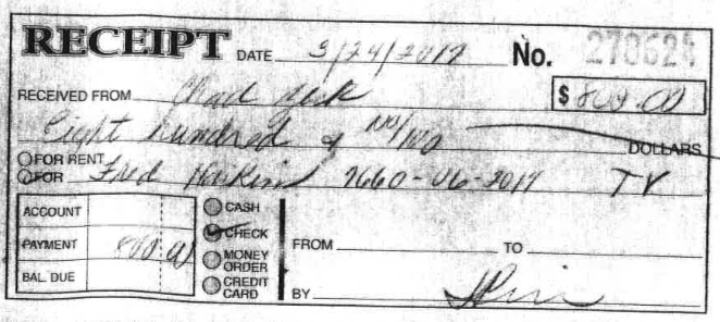 RECEIPT DATE 3/24/2017 No. 270624
RECEIVED FROM Chad $ 800.00
Eight hundred & no/100 DOLLARS
FOR RENT
FOR Fred 7660-06-2017 TX
ACCOUNT
PAYMENT 800.00
BAL. DUE
CASH
CHECK
MONEY ORDER
CREDIT CARD
FROM TO
BY